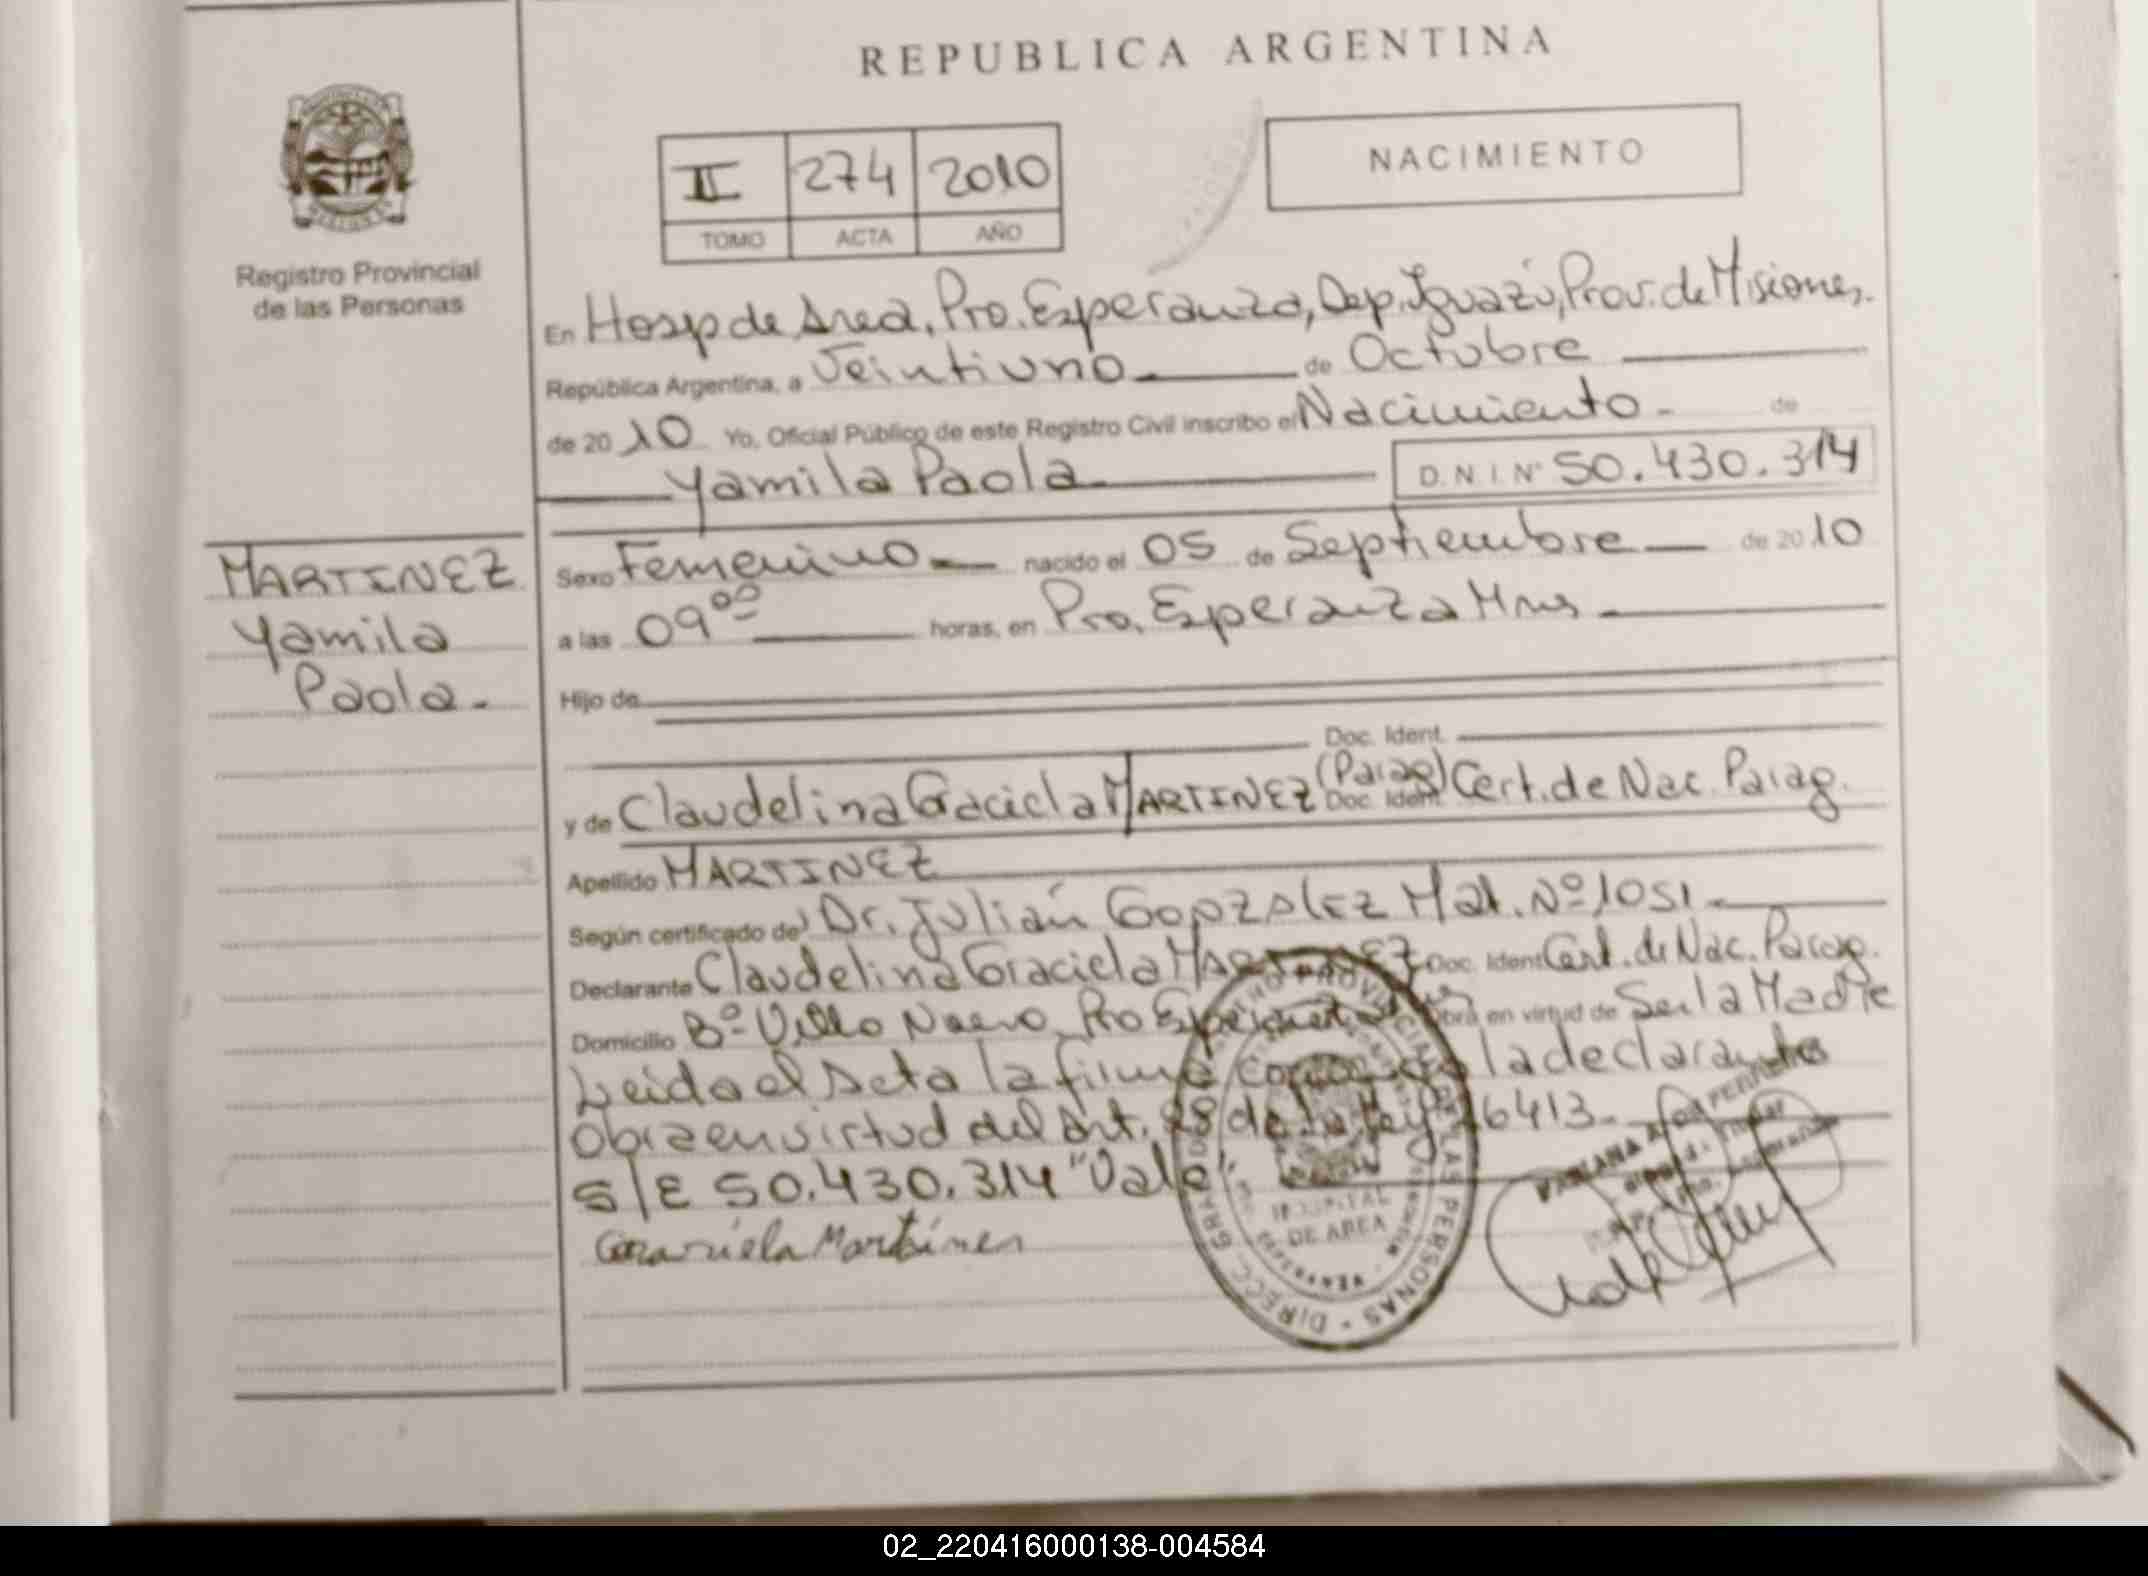 REPUBLICA ARGENTINA
NACIMIENTO
II 274 2010
TOMO ACTA AÑO
Registro Provincial
de las Personas
En Hosp de Area, Pto. Esperanza, Dep. Iguazú, Prov. de Misiones.
República Argentina, a Veintiuno de Octubre
de 2010 Yo, Oficial Público de este Registro Civil inscribo el Nacimiento - de
Yamila Paola
D.N.I. Nº 50.430.314
MARTINEZ
Yamila
Paola-
Sexo Femenino nacido el 05 de Septiembre de 2010
a las 09⁰⁰ horas, en Pto. Esperanza Mnes
Hijo de
Doc. Ident.
y de Claudelina Graciela MARTINEZ (Parag) Doc. Ident. Cert. de Nac. Parag.
Apellido MARTINEZ
Según certificado de Dr. Julián Gonzalez Mat. Nº 1051
Declarante Claudelina Graciela MARTINEZ Doc. Ident Cert. de Nac. Parag.
Domicilio Bº Villa Nueva Pto Esperanza Obra en virtud de Ser la Madre
Leida el Acta la firma la declarante
Obra en virtud del Art. 28 de la Ley 26413-
S/E 50.430.314 "Vale"
Graciela Martinez
REGISTRO PROVINCIAL DE LAS PERSONAS - DIRECC. GRAL.
HOSPITAL
DE AREA
02_220416000138-004584